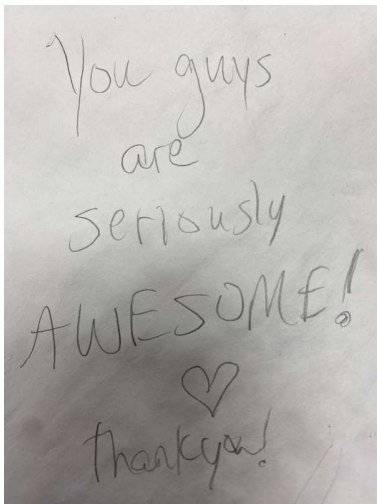 You guys
are
seriously
AWESOME!
♡
thankyou!